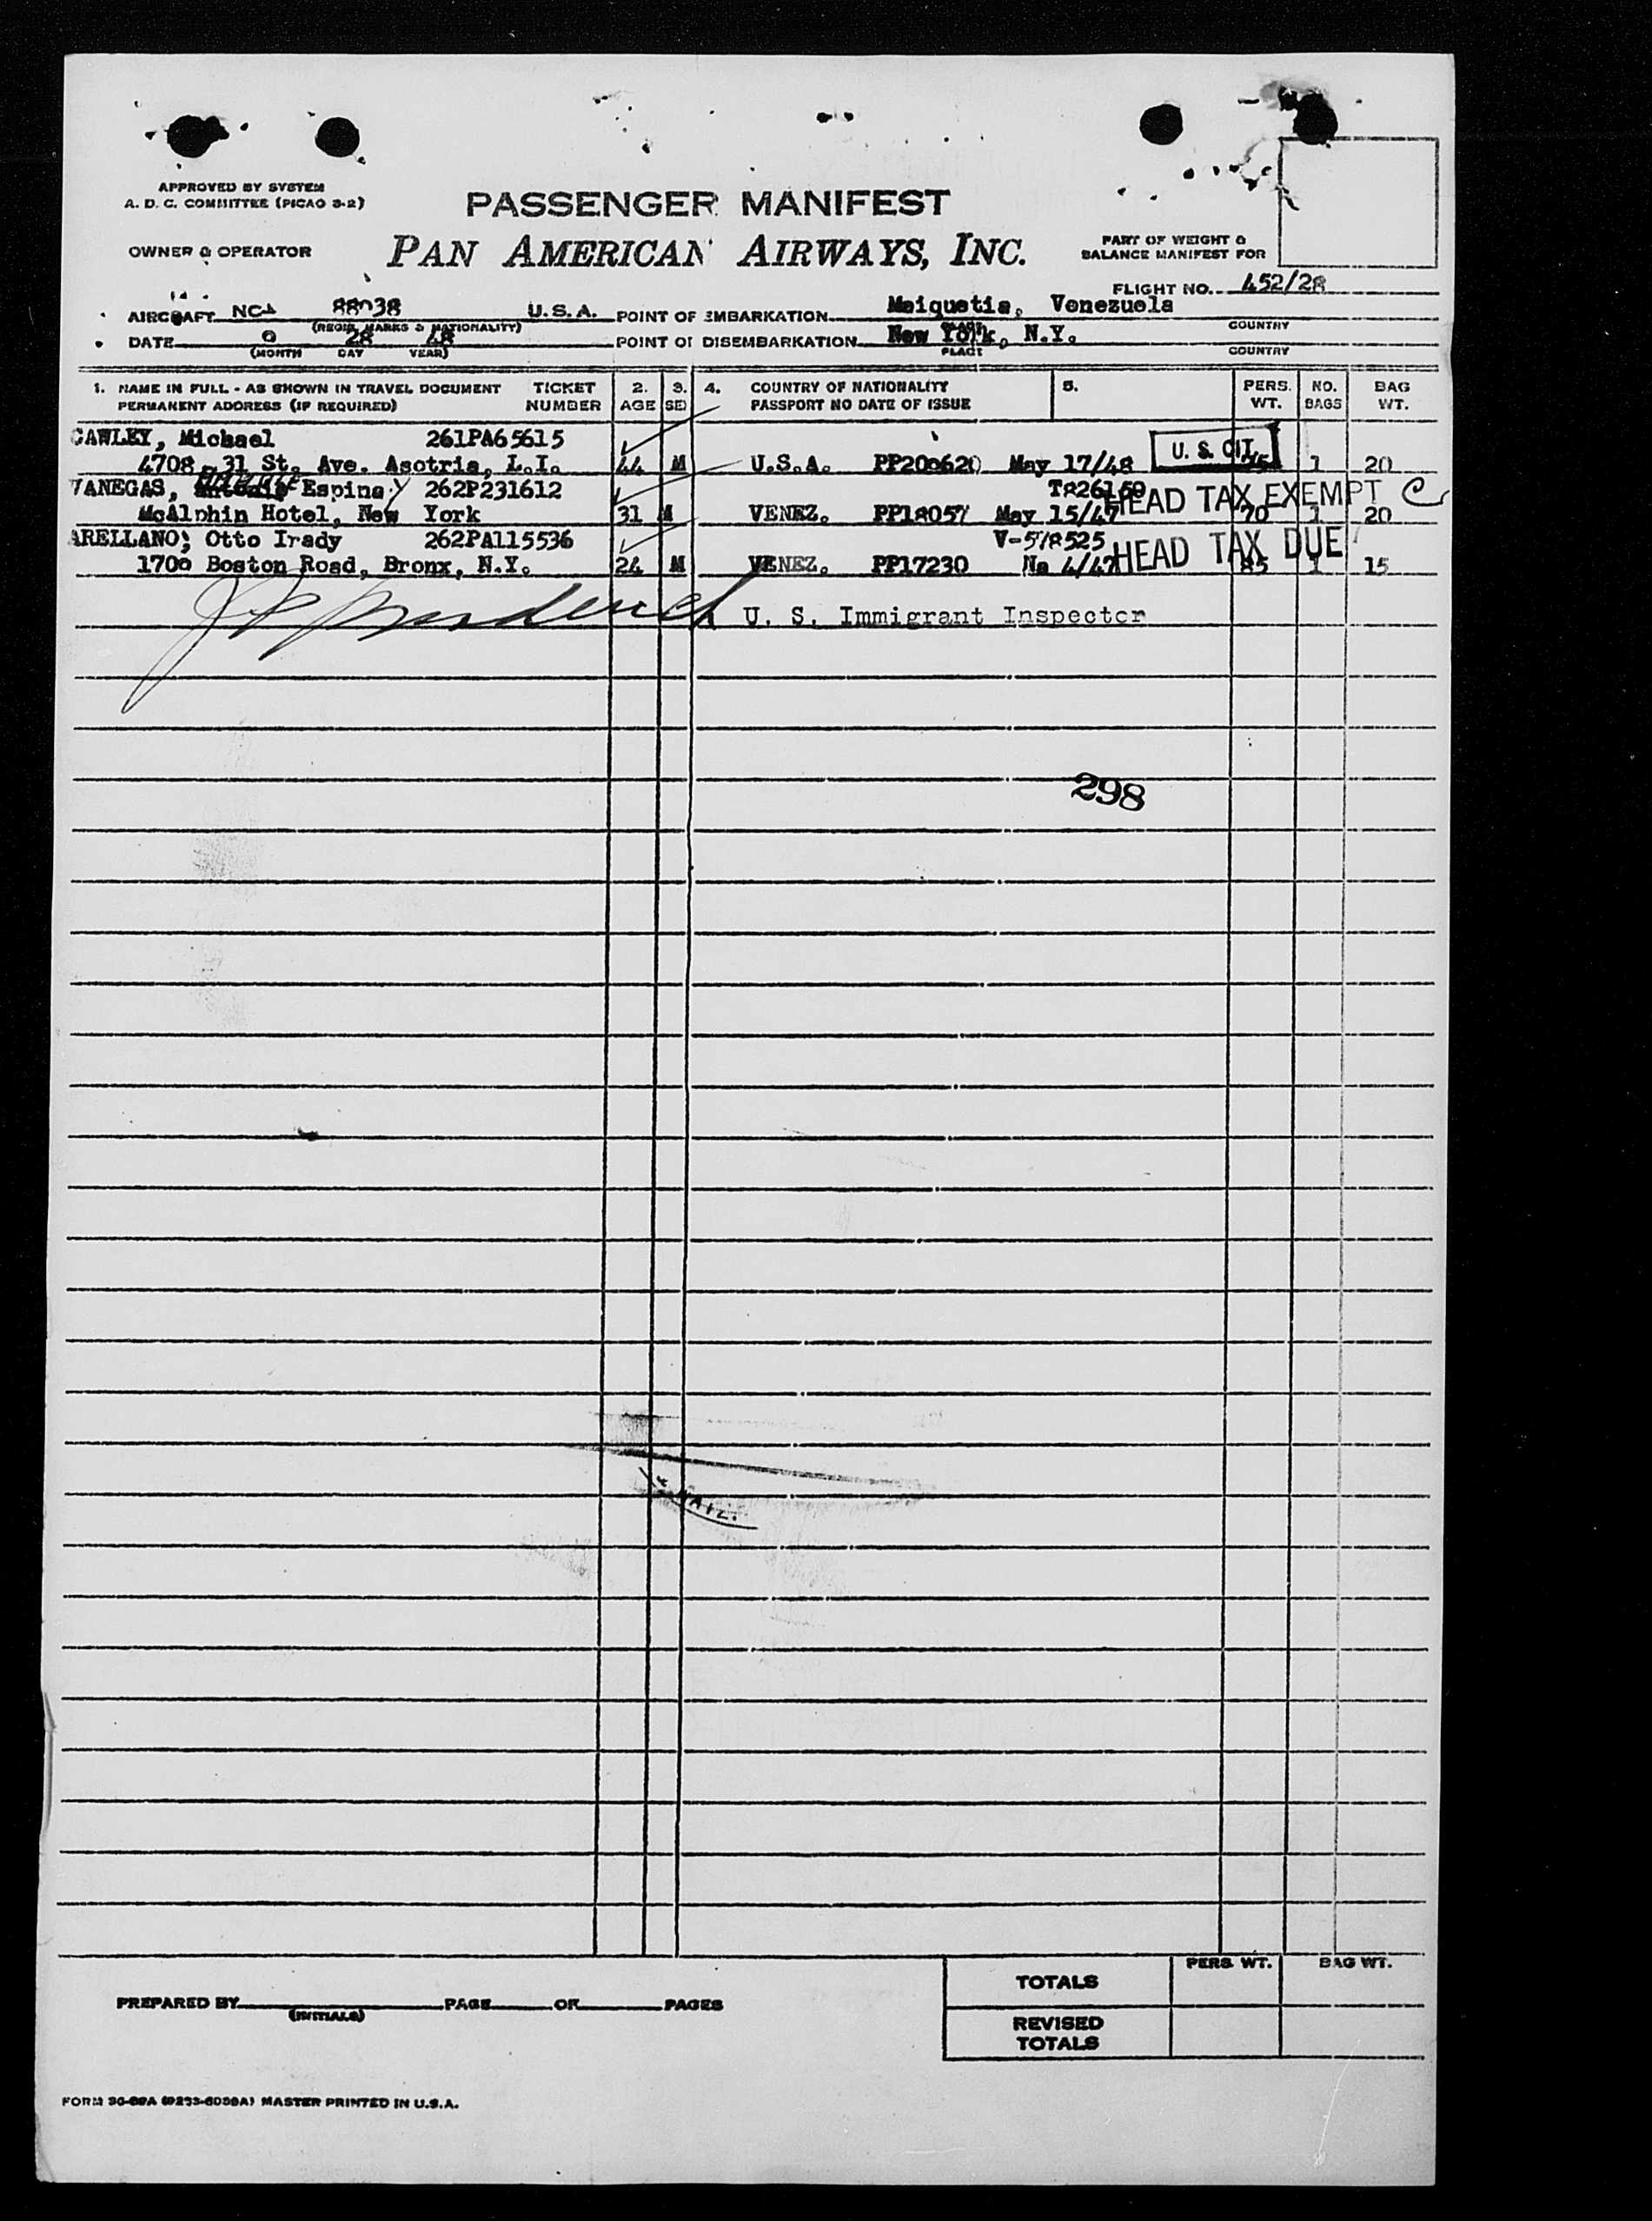 APPROVED BY SYSTEM
A. D. C. COMMITTEE (PICAO 3-2)
PASSENGER MANIFEST
OWNER & OPERATOR
PAN AMERICAN AIRWAYS, INC.
PART OF WEIGHT &
BALANCE MANIFEST FOR
FLIGHT NO. 452/28
AIRCRAFT NC- 88038 U.S.A. POINT OF EMBARKATION Maiquetia, Venezuela
(REGIS. MARKS & NATIONALITY) PLACE COUNTRY
DATE 28 48 POINT OF DISEMBARKATION New York, N.Y.
(MONTH DAY YEAR) PLACE COUNTRY
1. NAME IN FULL - AS SHOWN IN TRAVEL DOCUMENT TICKET 2. 3. 4. COUNTRY OF NATIONALITY 5. PERS. NO. BAG
PERMANENT ADDRESS (IF REQUIRED) NUMBER AGE SEX PASSPORT NO DATE OF ISSUE WT. BAGS WT.
CAWLEY, Michael 261PA65615
4708 - 31 St. Ave. Asotria, L.I. 44 M U.S.A. PP200620 May 17/48 U. S. CIT. 1 20
VANEGAS, Espina 262P231612 HEAD TAX EXEMPT C
McAlphin Hotel, New York 31 M VENEZ. PP18057 May 15/47 70 1 20
ARELLANO, Otto Irady 262PA115536 V-578525 HEAD TAX DUE
1700 Boston Road, Bronx, N.Y. 24 M VENEZ. PP17230 4/47 85 1 15
U. S. Immigrant Inspector
298
TOTALS PERS. WT. BAG WT.
PREPARED BY PAGE OF PAGES
(INITIALS)
REVISED
TOTALS
MASTER PRINTED IN U.S.A.